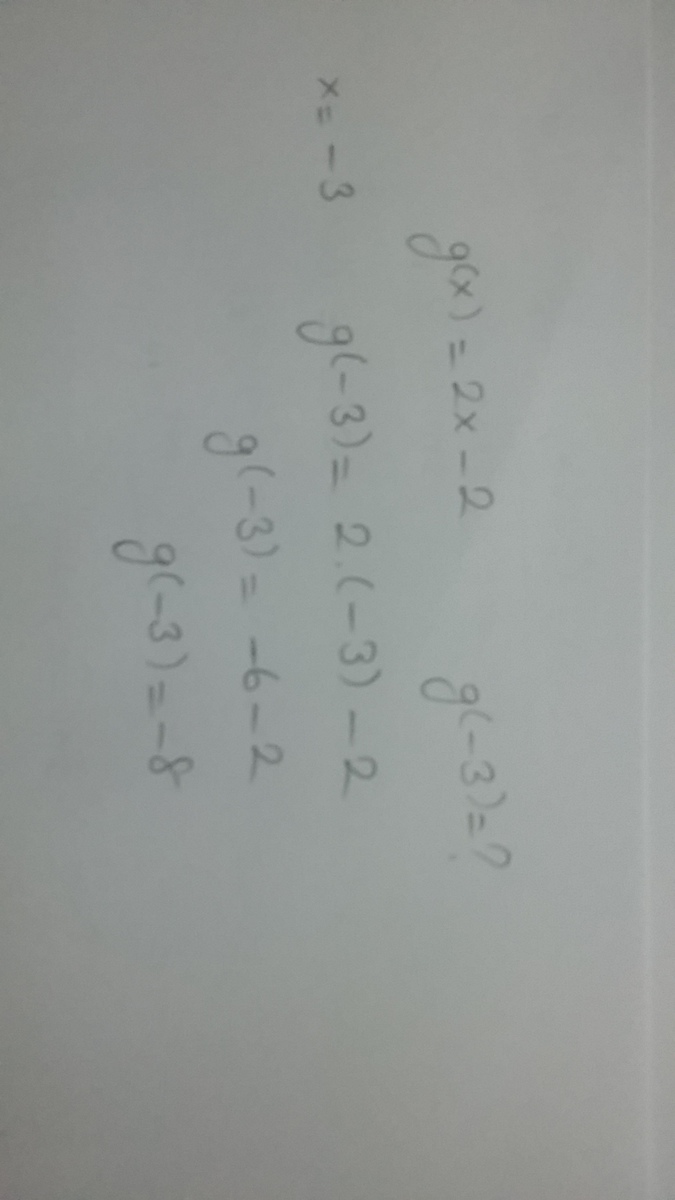 g(x) = 2x - 2 g(-3) = ?
x = -3 g(-3) = 2.(-3) - 2
g(-3) = -6 - 2
g(-3) = -8